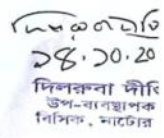 ১৪.১০.২০
দিলরুবা দীপ্তি
উপ-ব্যবস্থাপক
বিসিক, নাটোর